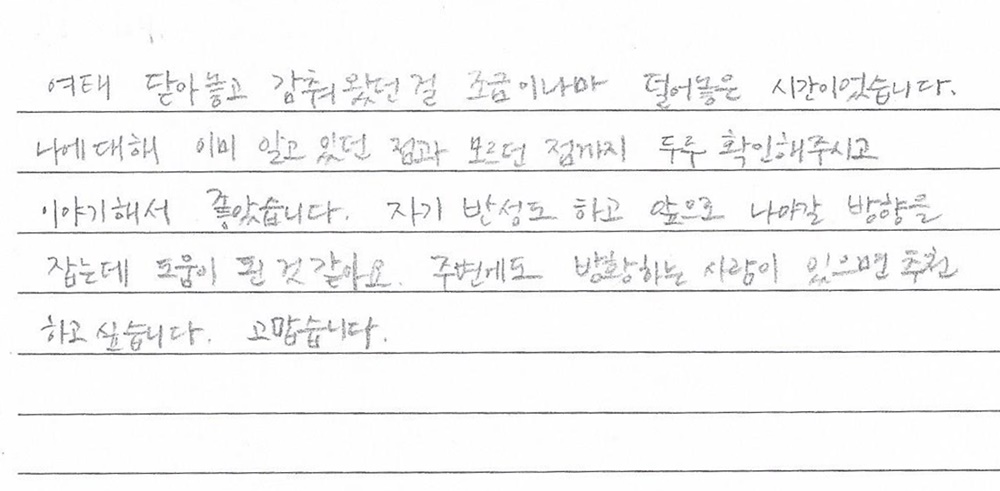 여태 닫아놓고 감춰왔던 걸 조금이나마 털어놓은 시간이었습니다.
나에 대해 이미 알고 있던 점과 모르던 점까지 두루 확인해주시고
이야기해서 좋았습니다. 자기 반성도 하고 앞으로 나아갈 방향을
잡는데 도움이 된 것 같아요. 주변에도 방황하는 사람이 있으면 추천
하고 싶습니다. 고맙습니다.